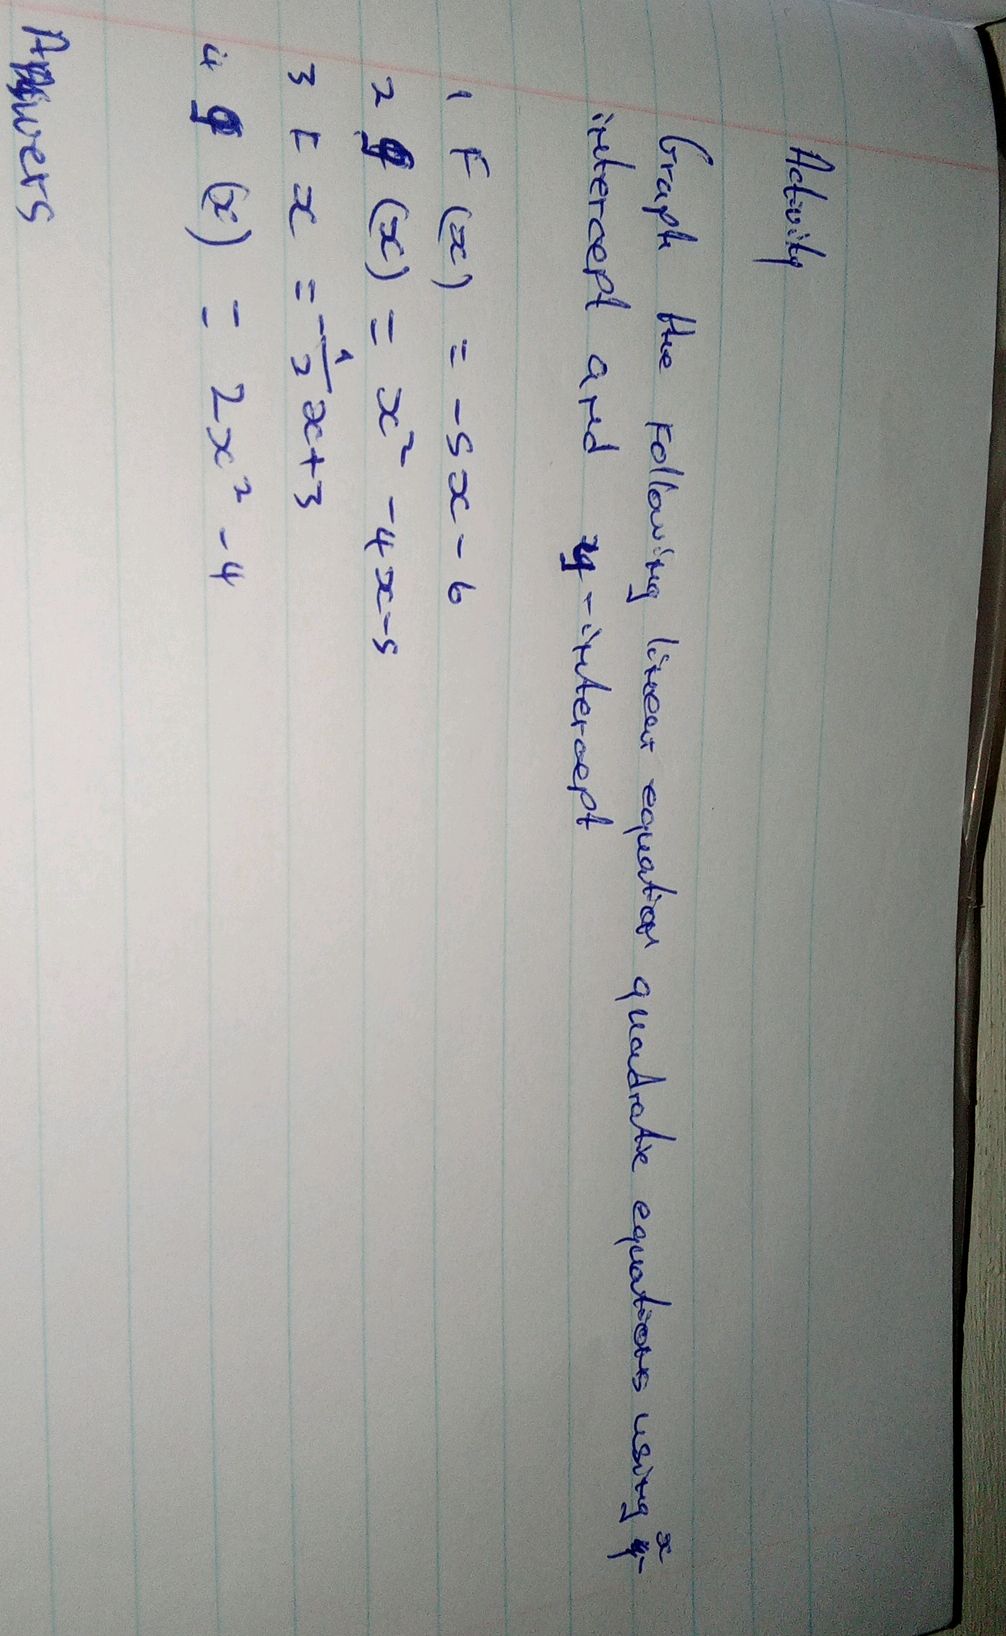 Activity
Graph the following linear equation quadratic equations using x-
intercept and y-intercept
1 F(x) = -5x - 6
2 g(x) = x² - 4x - 5
3 F x = -1/2 x + 3
4 g(x) = 2x² - 4
Answers